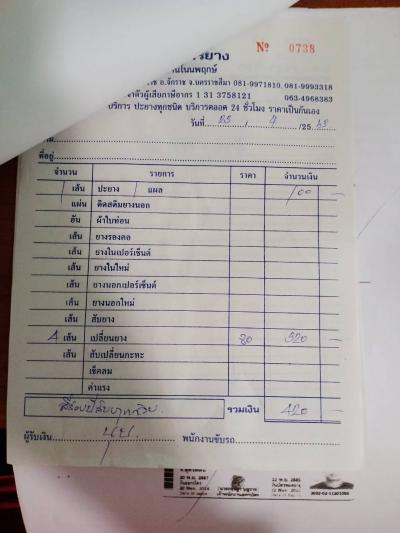 รยาง
№ 0738
านโนนพฤกษ์
าช อ.จักราช จ.นครราชสีมา 081-9971810, 081-9993318
จำตัวผู้เสียภาษีอากร 1 31 3758121 063-4968383
บริการ ปะยางทุกชนิด บริการตลอด 24 ชั่วโมง ราคาเป็นกันเอง
วันที่ / 4 /25 63
ที่อยู่
จำนวน รายการ ราคา จำนวนเงิน
1 เส้น ปะยาง แผล 100 -
แผ่น ติดสติมยางนอก
อัน ผ้าใบท่อน
เส้น ยางรองคอ
เส้น ยางในเปอร์เซ็นต์
เส้น ยางในใหม่
เส้น ยางนอกเปอร์เซ็นต์
เส้น ยางนอกใหม่
เส้น สับยาง
4 เส้น เปลี่ยนยาง 80 320 -
เส้น สับเปลี่ยนกะทะ
เช็คลม
ค่าแรง
สี่ร้อยยี่สิบบาทถ้วย รวมเงิน 420 -
ผู้รับเงิน นุ้ย พนักงานขับรถ